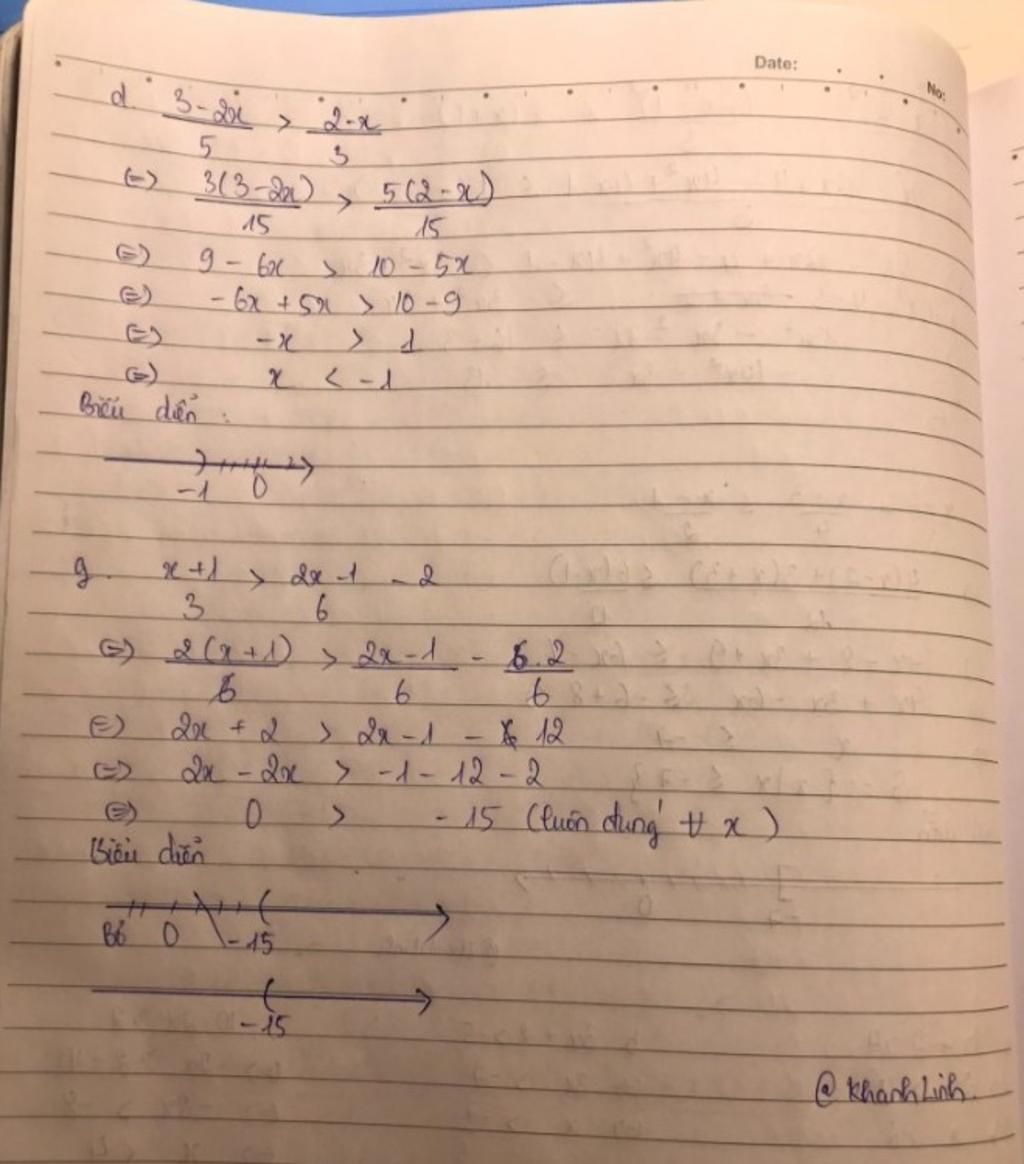 Date:
No:
d. (3-2x)/5 > (2-x)/3
(=) 3(3-2x)/15 > 5(2-x)/15
(=) 9 - 6x > 10 - 5x
(=) -6x + 5x > 10 - 9
(=) -x > 1
(=) x < -1
Biểu diễn :
-1 0
g. (x+1)/3 > (2x-1)/6 - 2
(=) 2(x+1)/6 > (2x-1)/6 - 6.2/6
(=) 2x + 2 > 2x-1 - 12
(=) 2x - 2x > -1 - 12 - 2
(=) 0 > -15 (luôn đúng ∀ x )
Biểu diễn
Bỏ 0 -15
-15
@ KhanhLinh.